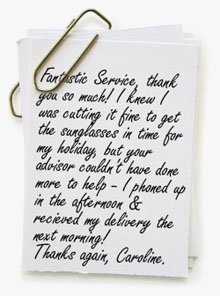 Fantastic Service, thank
you so much! I knew I
was cutting it fine to get
the sunglasses in time for
my holiday, but your
advisor couldn't have done
more to help - I phoned up
in the afternoon &
recieved my delivery the
next morning!
Thanks again, Caroline.